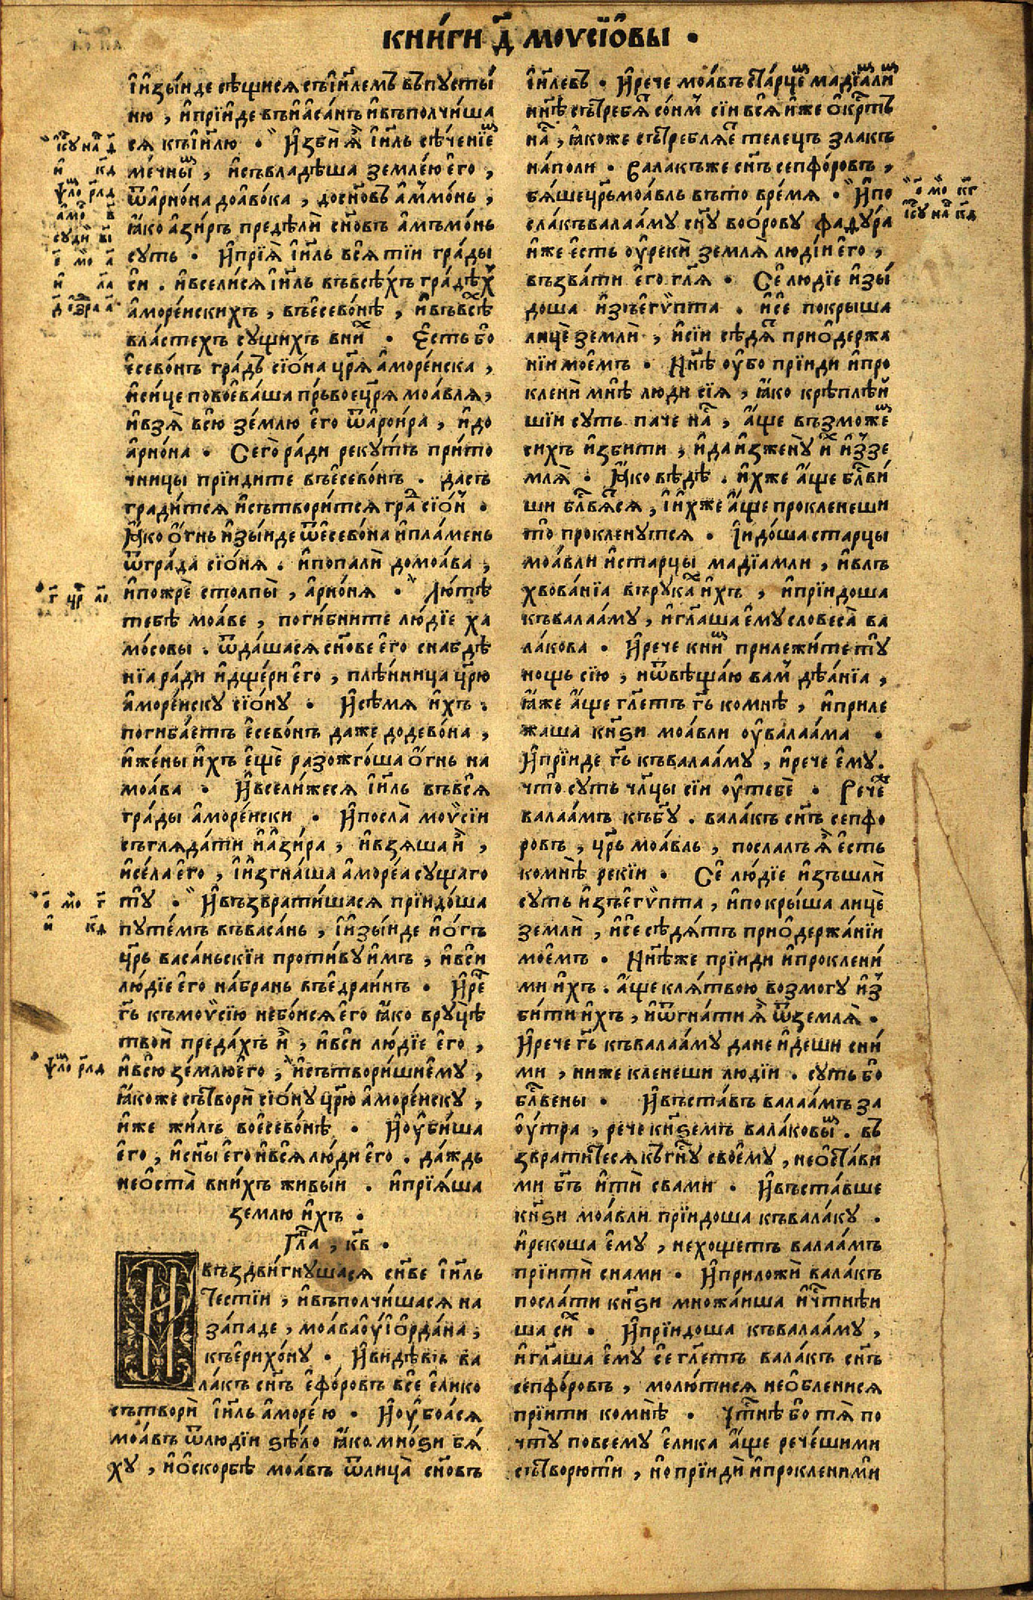 кни́ги д҃ моѵсїо̑вы ·
і҆и҆зы́иде сѣщися съі҆и҃лемъ въпусты́
ню , и҆прїи́де въи҆аса́нъ и҆въполчи́ша
ся къі҆и҃лю · И҆зби̑ ꙗ҆̀ і҆и҃ль сѣче́нїеⷨ
ме́чныⷨ , и҆съвладѣ́ша земле́ю е҆го̀ ,
ѿа҆рно́на доа҆во́ка , досн҃о́въ а҆ммо́нь ,
ꙗ҆́ко а҆зи́ръ предѣ́ли сн҃о́въ а҆мъмо́нь
суть · И҆прїя̀ і҆и҃ль вся̑ тїи гра́ды
си . и҆всели́ся і҆и҃ль въвсѣ́хъ градѣ́х
а҆море́искихъ , въе҆севонѣ̀ , и҆въвсѣⷯ
власте́хъ су́щихъ вни́ⷯ · Е҆сть бо
е҆сево́нъ гра́дъ сїо́на цр҃я̀ а҆море́иска ,
и҆си́це повоева́ша пръвое цр҃я моа́вля,
и҆взя̀ всю̀ зе́млю е҆го̀ ѿа҆рои́ра , и҆до
а҆рно́на · Сего̀ ра́ди реку́тъ при́то
чницы прїиди́те въе҆сево́нъ . да съ
гради́тся и҆сътвори́тся граⷣ сїо́нь ·
Ꙗ҆́ко о҆́гнь и҆зы́иде ѿе҆сево́на и҆пла́мень
ѿгра́да сїо́ня . и҆попалѝ домоа́ва ,
и҆пожрѐ столпы̀ , а҆рно́ня · Лю́тѣ
тебѣ̀ моа́ве , поги́бните лю́дїе ха
мо́совы . ѿда́шася сн҃ове е҆го̀ снабдѣ
нїа ра́ди и҆дще́ри е҆го̀ , плѣ́нница цр҃ю
а҆море́иску сїо́ну · И҆сѣ́мя и҆́хъ .
погиба́етъ е҆сево́нъ даже додево́на ,
и҆же́ны и҆́хъ е҆щѐ разожго́ша о҆́гнь на
моа́ва · И҆всели́жеся і҆и҃ль въвся̑
гра́ды а҆море́иски · И҆посла̀ моѵсїи
съгляда́ти и҆а҆зи́ра , и҆взя́ша и҆̀ ,
и҆се́ла е҆го̀ , і҆и҆згна́ша а҆море́а су́щаго
ту̀ · И҆възврати́шася прїидо́ша
путе́мъ въваса́нь , і҆и҆зы́иде и҆о́гъ
цр҃ь васа́ньскїи проти́ву и҆́мъ , и҆вси̑
лю́дїе е҆го̀ на́брань въе҆драи́нъ · И҆реⷱ҇
гь҃ къмоѵсїю небо́ися е҆го̀ ꙗ҆́ко вруцѣ̀
твоѝ преда́хъ и҆̀ , и҆вси̑ лю́дїе е҆го̀ ,
и҆всю̀ зе́млю е҆го̀ , и҆сътвори́ши е҆му̀ ,
ꙗ҆́коже сътворѝ сїо́ну цр҃ю а҆море́иску ,
и҆́же жи́лъ вое҆севонѣ̀ · И҆оу҆би́ша
е҆го̀ , и҆сн҃ы е҆го̀ и҆вся̑ лю́ди е҆го̀ . да́ждь
нео҆ста̀ вни́хъ живы́и . и҆прїя́ша
зе́млю и҆́хъ .
Гл҃а , к҃в .
И҆въздви́гнушася сн҃ве і҆и҃ль
Че́стїи , и҆въполчи́шася на
за́паде , моа́ва оу҆і҆о҆рда́на ,
къе҆рихо́ну · И҆ви́дѣвъ ва
ла́къ сн҃ъ е҆фо́ровъ все̑ е҆ли́ко
сътворѝ і҆и҃ль а҆море́ю · И҆оу҆боа́ся
моа́въ ѿлю́дїи ѕѣ́ло ꙗ҆́ко мно́ѕи бя́
ху , и҆о҆скорбѣ̀ моа́въ ѿлица̀ сн҃о́въ
і҆и҃левъ · И҆рече моа́въ ста́рцеⷨ мадїа́лиⷨ
нн҃ѣ сътреби́ⷮ со́нмъ сїи вся̑ и҆́же о҆́крⷭ҇тъ
на́ⷭ , ꙗ҆́коже съ́требля́еⷮ телецъ злакъ
на́поли · Вала́къ же сн҃ъ сепфо́ровъ ,
бя́ше цр҃ь моа́вль въто̀ вре́мя · И҆по
сла̀ къвалаа́му сн҃у восо́рову фаду́ра
и҆же е҆сть оу҆реки̑ земля̀ людїи е҆го̀ ,
възва́ти е҆го̀ гл҃я · Се̑ лю́дїе и҆зы́
доша и҆зъе҆гѵ́пта . и҆се̑ покрыша
лицѐ землѝ , и҆сїи сѣдя́ⷮ прио҆держа
нїи мое́мъ · Нн҃ѣ оу҆бо прїиди и҆про
кленѝ мнѣ̀ лю́ди сїя , ꙗ҆́ко крѣплѣ́и
шїи суть па́че на́ⷭ , а҆́ще възмо́жеⷨ
сихъ и҆зби́ти , и҆да и҆зжену̀ и҆́хъ и҆ззе
мля̀ · Ꙗ҆́ко вѣ́дѣ . и҆́хже а҆́ще бл҃гви́
ши бл҃гвя́тся , і҆и҆́хже а҆́ще проклене́ши
то̀ проклену́тся · І҆идо́ша ста́рцы
моа́вли и҆ста́рцы мадїа́мли , и҆влъ
хвова́нїа вържука́ⷯ и҆́хъ , и҆прїидо́ша
къвалаа́му , и҆гл҃аша е҆му̀ словеса̀ ва
ла́кова · И҆рече ки́иⷨ прилежи́те ту̀
нощь сїю̀ , и҆ѿвѣща́ю вам дѣ́анїа ,
ꙗ҆́же а҆́ще гл҃етъ гь҃ комнѣ̀ , и҆приле
жа́ша кн҃ѕи моа́вли оу҆валаа́ма ·
И҆прїиде гь҃ къвалаа́му , и҆рече е҆му̀ .
что̀ суть чл҃цы сїи оу҆тебѐ · Речеⷤ
валаа́мъ къбг҃у . вала́къ сн҃ъ сепфо
ровъ , цр҃ь моа́вль , посла́лъ ꙗ҆̀ е҆сть
комнѣ̀ реки̑и · Се̑ лю́дїе и҆зъшлѝ
суть и҆зъе҆гѵ́пта , и҆покры́ша лицѐ
землѝ , и҆се̑ сѣдя́тъ прио҆держа́нїи
мое́мъ · Нн҃ѣже прїиди̑ и҆проклени̑
ми и҆́хъ . а҆́ще кля́твою возмогу̀ и҆з
би́ти и҆́хъ , и҆ѿгна́ти ꙗ҆̀ ѿземля̀ .
И҆рече гь҃ къвалаа́му да не и҆де́ши сни́
ми , ни́же клене́ши люди́и . суть бо
бл҃гве́ны · И҆въста́въ валаа́мъ за
оу́тра , рече кн҃ѕемъ вала́ковыⷨ . въ
зврати́теся къгн҃у своему̀ , нео҆ста́ви
ми бг҃ъ и҆тѝ сва́ми · И҆въста́вше
кн҃ѕи моа́вли прїидо́ша къвала́ку .
и҆реко́ша е҆му̀ , нехо́щетъ валаа́мъ
прїитѝ сна́ми · И҆приложѝ вала́къ
посла́ти кн҃ѕи множа́иша и҆чⷭ҇тнѣ́и
ша си́ⷯ · И҆прїидо́ша къвалаа́му ,
и҆гл҃аша е҆му̀ се̑ гл҃етъ вала́къ сн҃ъ
сепфо́ровъ , молю́тися нео҆бле́нися
прїити комнѣ̀ · Чⷭ҇тнѣ бо тя̀ по
чту̀ повсему̀ е҆ли́ка а҆́ще рече́ши ми
сътворю́ти , но прїидѝ и҆проклени́ ми